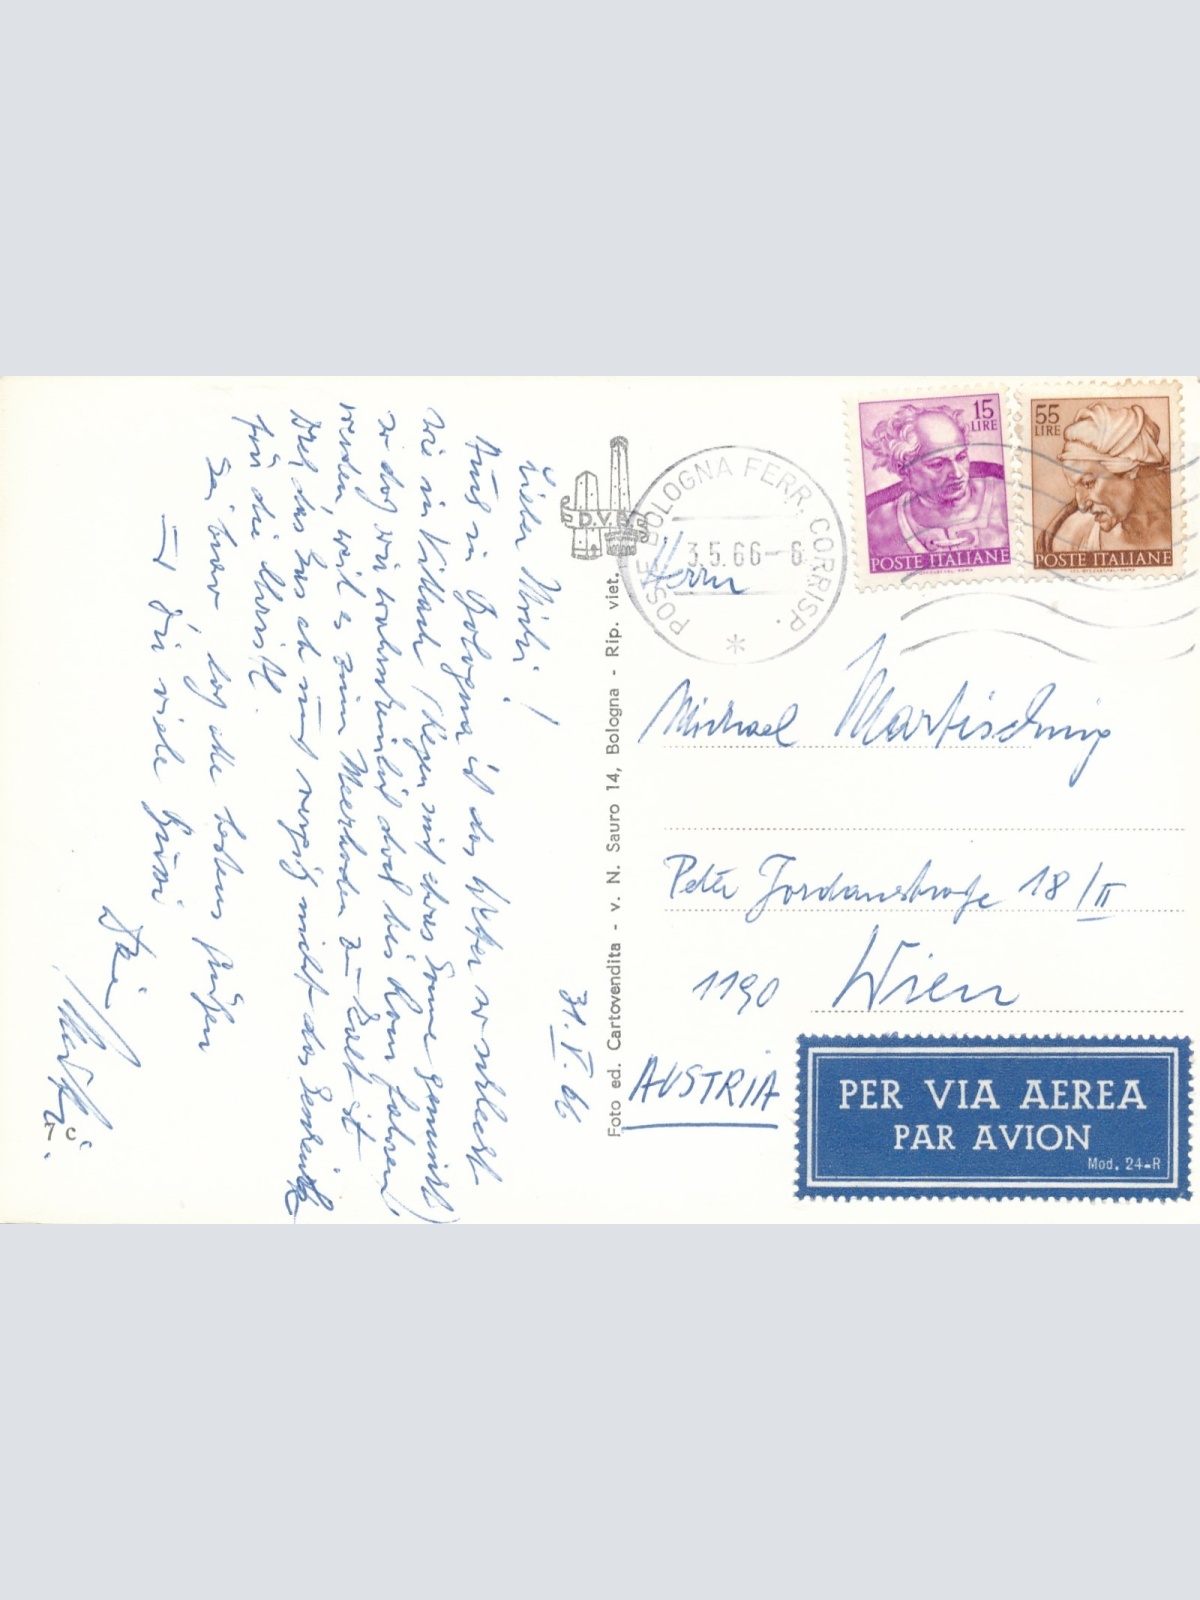 31. V. 66
Lieber Michi!
Auch in Bologna ist das Wetter so schlecht
wie in Villach (Regen mit etwas Sonne gemischt)
so daß wir wahrscheinlich doch bis Rom fahren
werden, weil es zum Meerbaden zu kalt ist
Dreh das Gas ab und vergiß nicht das
für die
Sei brav, laß alle bestens grüßen
und Dir viele Bussi
Dein
7 c.
D.V.B.
Foto ed. Cartovendita - v. N. Sauro 14, Bologna - Rip. viet.
POSTE BOLOGNA FERR. CORRISP.
3.5.66-6
15
LIRE
POSTE ITALIANE
55
LIRE
POSTE ITALIANE
Herrn
Michael Martischnig
Peter Jordanstraße 18/II
1190 Wien
AUSTRIA
PER VIA AEREA
PAR AVION
Mod. 24-R